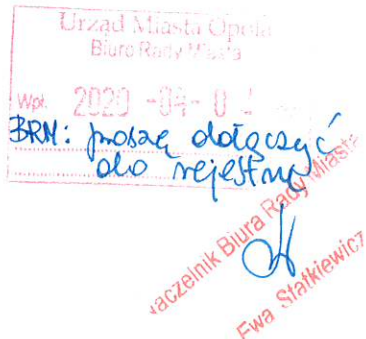 Urząd Miasta Opola
Biuro Rady Miasta
Wpł. 2020 -04- 0
BRM: proszę dołączyć
do rejestru
Naczelnik Biura Rady Miasta
Ewa Statkiewicz